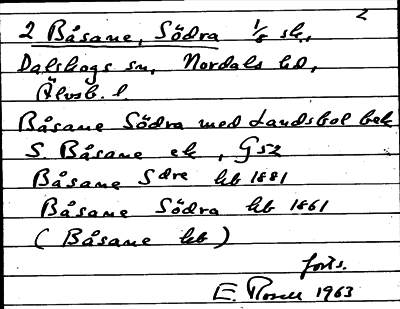 2
2 Båsane, Södra 1/8 sk.,
Dalskogs sn, Nordals hd,
Älvsb. l
Båsane Södra med Landsbol bek
S. Båsane ek, G52
Båsane Sdre hb 1881
Båsane Södra hb 1861
(Båsane hb)
forts.
E. 1963